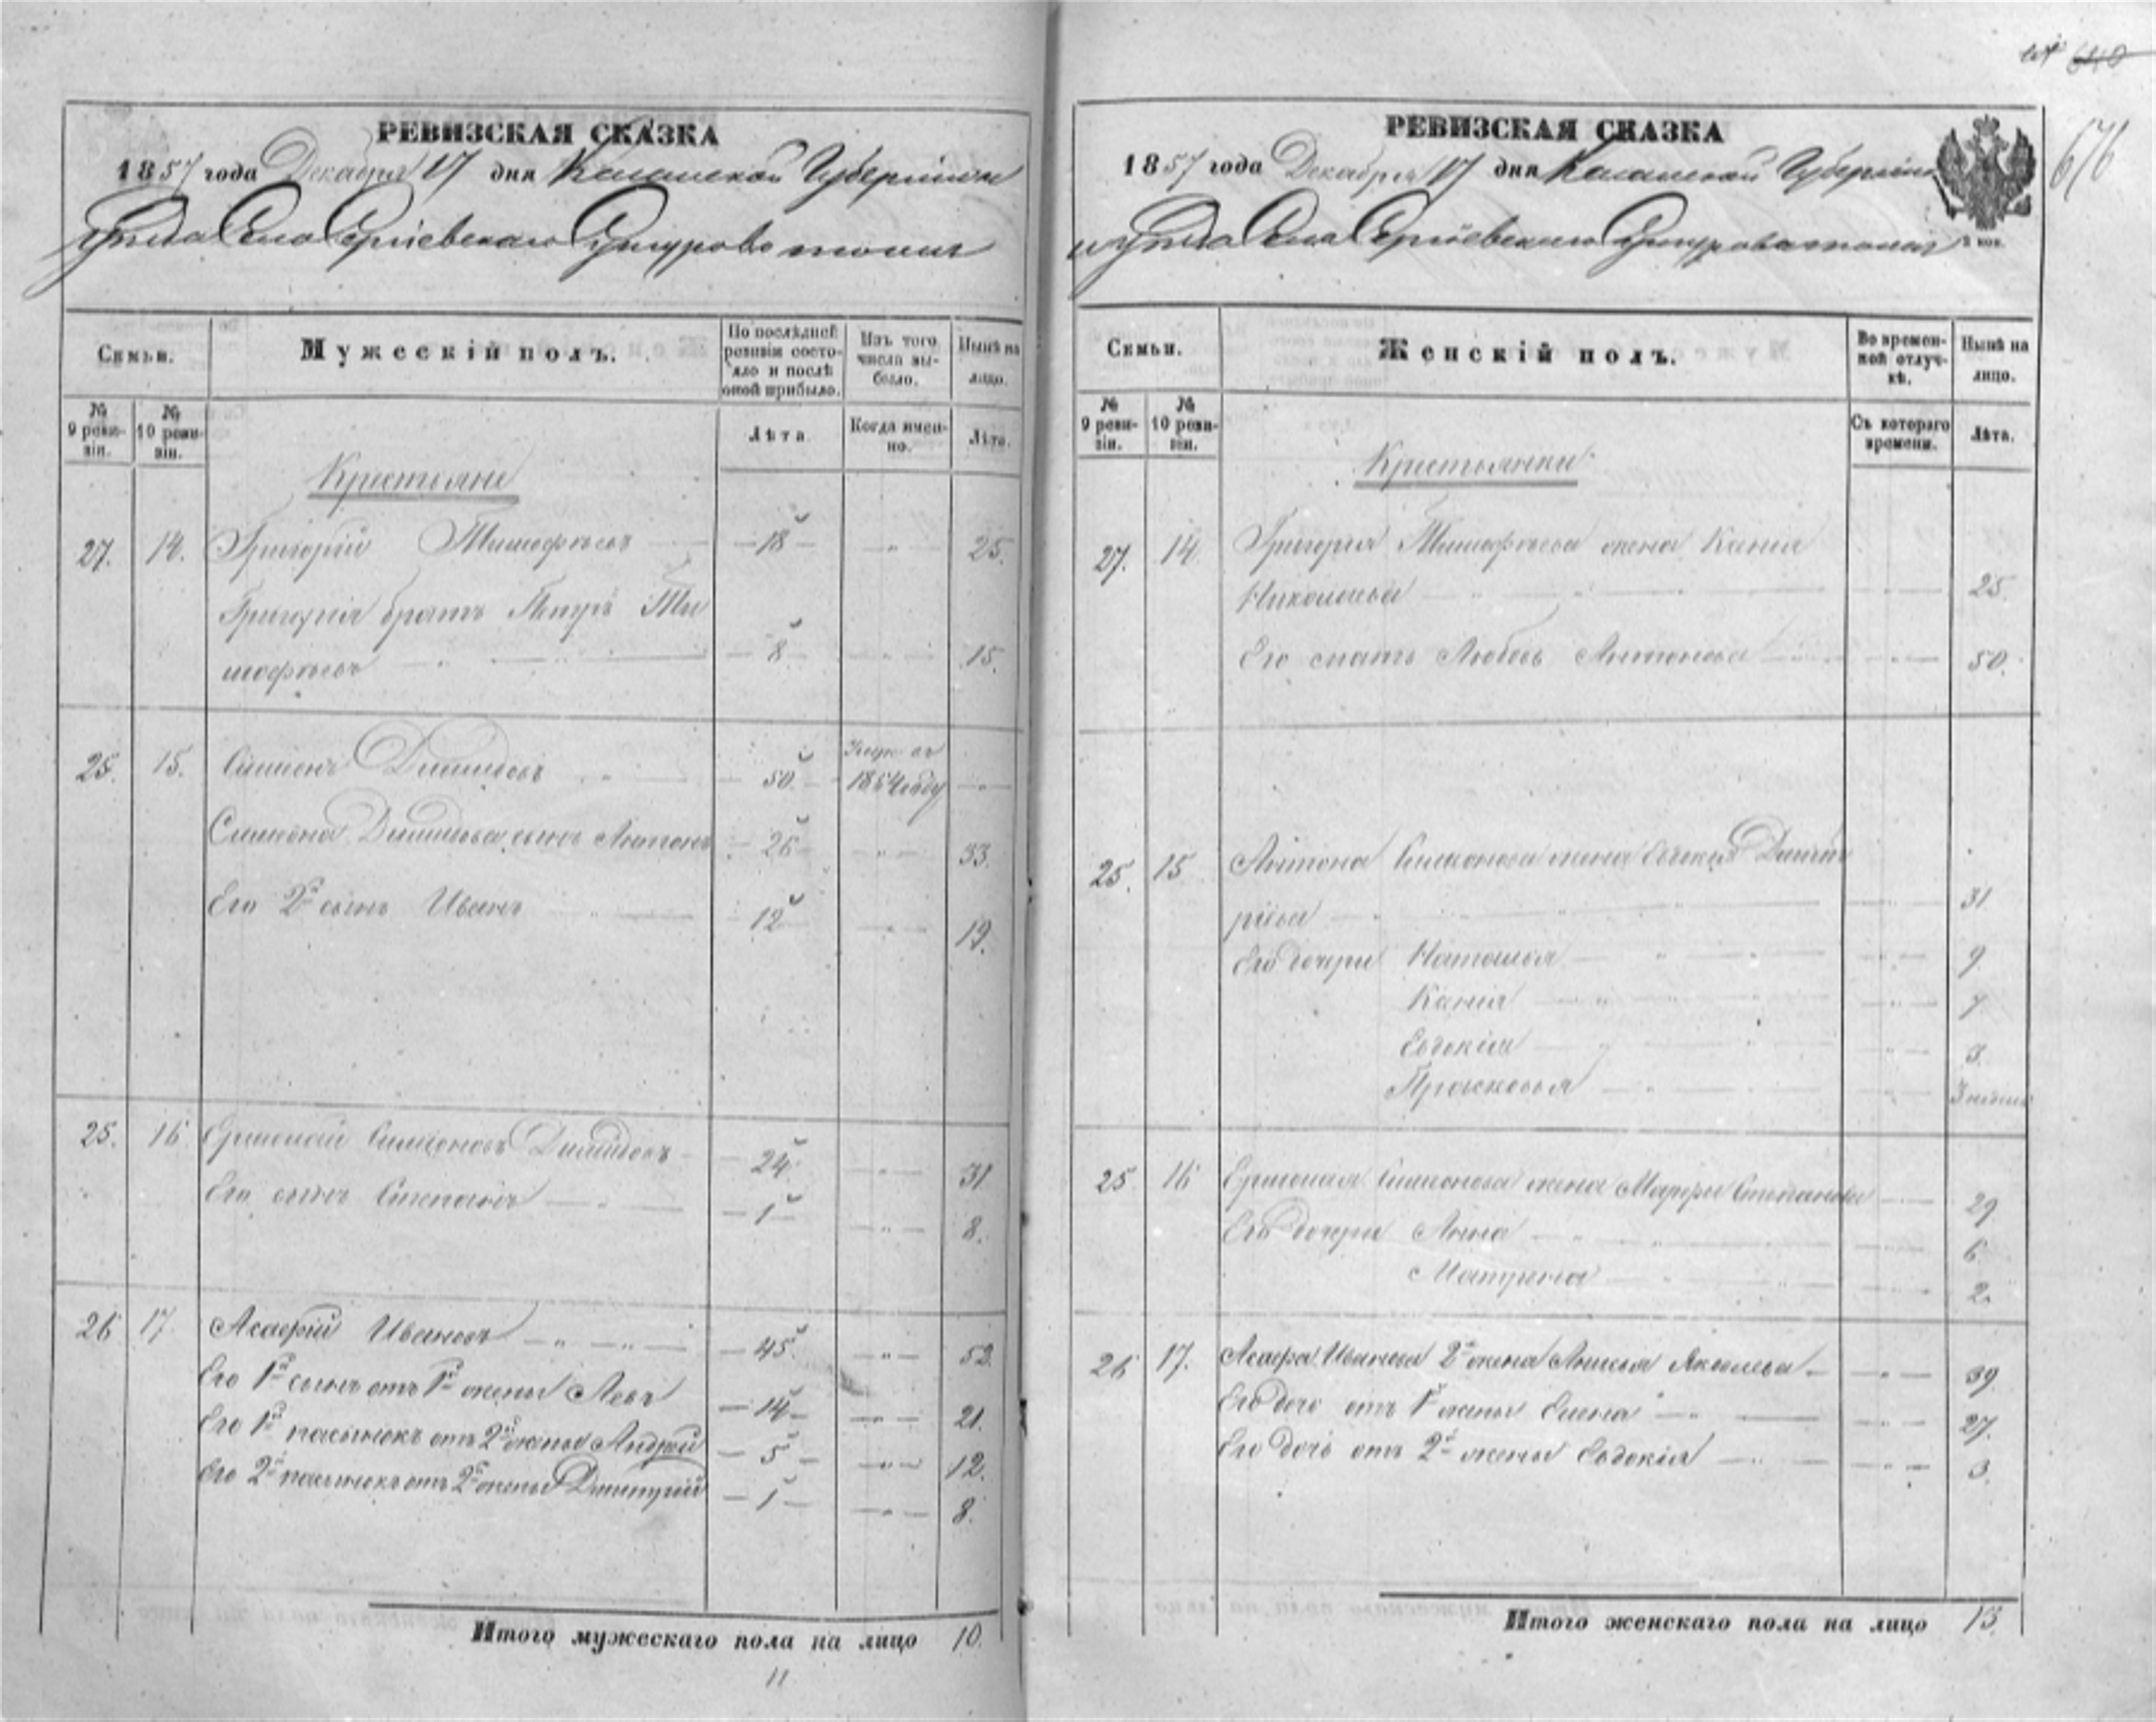 640
676
РЕВИЗСКАЯ СКАЗКА
1857 года Декабря 17 дня Казанской Губерніи
уѣзда Села Сергіевскаго
Семьи.
Мужескій полъ.
По послѣдней ревизіи состояло и послѣ оной прибыло.
Изъ того числа выбыло.
Нынѣ на лицо.
№ 9 ревизіи.
№ 10 ревизіи.
Лѣта.
Когда именно.
Лѣта.
Крестьяне
27. 14. Григорій Тимофѣевъ 18 25.
Григорія братъ Петръ Ти
мофѣевъ 8 15.
25. 15. Симіонъ Димидовъ 50 1854 году
Симіона Димидова сынъ Антонъ 26 33.
Его 2й сынъ Иванъ 12 19.
25. 16 Ермолай Симіоновъ Димидовъ 24 31
Его сынъ Степанъ 1 8.
26 17. Асафій Ивановъ 45 52
Его 1й сынъ отъ 1й жены Левъ 14 21.
Его 1й пасынокъ отъ 2й жены Андрей 5 12.
Его 2й пасынокъ отъ 2й жены Дмитрій 1 8.
Итого мужескаго пола на лицо 10.
11
РЕВИЗСКАЯ СКАЗКА
1857 года Декабря 17 дня Казанской Губерніи
и уѣзда Села Сергіевскаго
2 коп.
Семьи.
Женскій полъ.
Во временной отлучкѣ.
Нынѣ на лицо.
№ 9 ревизіи.
№ 10 ревизіи.
Съ котораго времени.
Лѣта.
Крестьянки
27. 14 Григорія Тимофѣева жена Ксенія
Николаева 25
Его мать Любовь Антонова 50.
25. 15 Антона Симіонова жена Дмит
ріева 31
Его дочери Наталья 9
Ксенія 7
Евдокія 3.
Прасковья
25 16 Ермолая Симіонова жена Марфа Степанова 29
Его дочери Анна 6
Матрена 2.
26 17. Асафа Иванова 2я жена Анисья Яковлева 39
Его дочь отъ 1й жены Елена 27.
Его дочь отъ 2й жены Евдокія 3.
Итого женскаго пола на лицо 13.